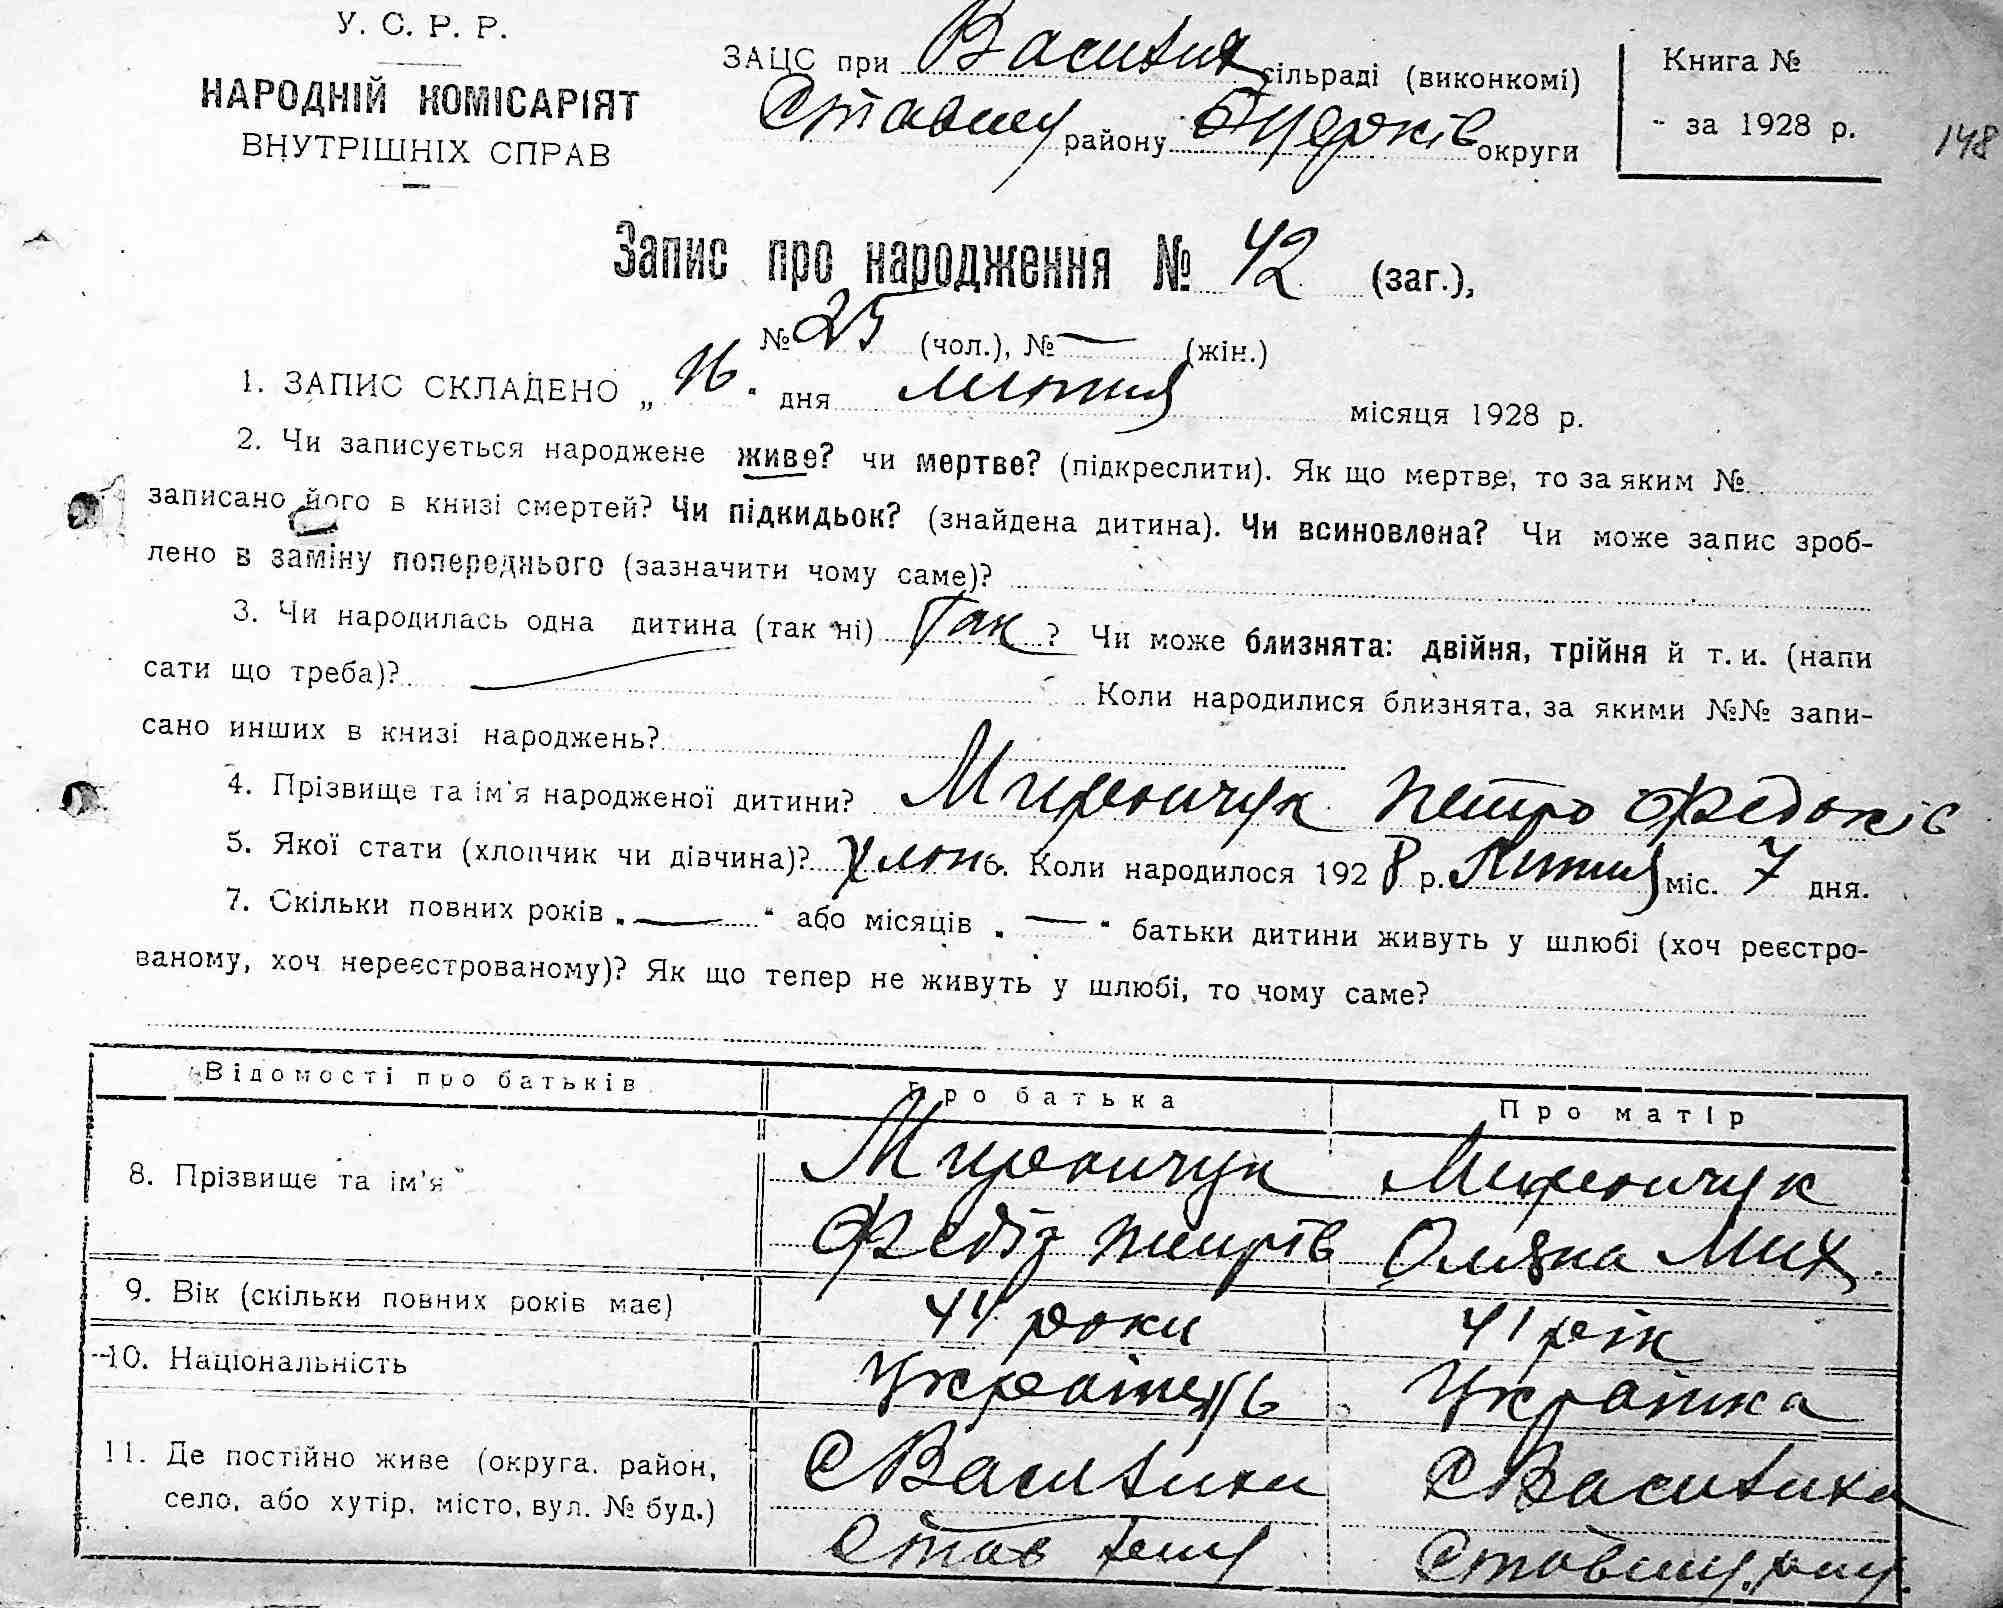 У. С. Р. Р.
НАРОДНІЙ КОМІСАРІЯТ
ВНУТРІШНІХ СПРАВ
ЗАЦС при сільраді (виконкомі)
району округи
Книга №
за 1928 р.
148
Запис про народження № 42 (заг.),
№ 25 (чол.), № — (жін.)
1. ЗАПИС СКЛАДЕНО „16" дня липня місяця 1928 р.
2. Чи записується народжене живе? чи мертве? (підкреслити). Як що мертве, то за яким №
записано його в книзі смертей? Чи підкидьок? (знайдена дитина). Чи всиновлена? Чи може запис зроб-
лено в заміну попереднього (зазначити чому саме)?
3. Чи народилась одна дитина (так ні) Так ? Чи може близнята: двійня, трійня й т. и. (напи
сати що треба)? Коли народилися близнята, за якими №№ запи-
сано инших в книзі народжень?
4. Прізвище та ім'я народженої дитини? Миренчук Петро Федоків
5. Якої стати (хлопчик чи дівчина)? хлопь. Коли народилося 1928 р. Липня міс. 7 дня.
7. Скільки повних років „ — " або місяців „ — " батьки дитини живуть у шлюбі (хоч реєстро-
ваному, хоч нереєстрованому)? Як що тепер не живуть у шлюбі, то чому саме?
Відомості про батьків
Про батька
Про матір
8. Прізвище та ім'я
Миренчук
Федір
Миренчук
Оляна Мих.
9. Вік (скільки повних років має)
44 роки
41 рік
10. Національність
Українець
Українка
11. Де постійно живе (округа, район,
село, або хутір, місто, вул. № буд.)